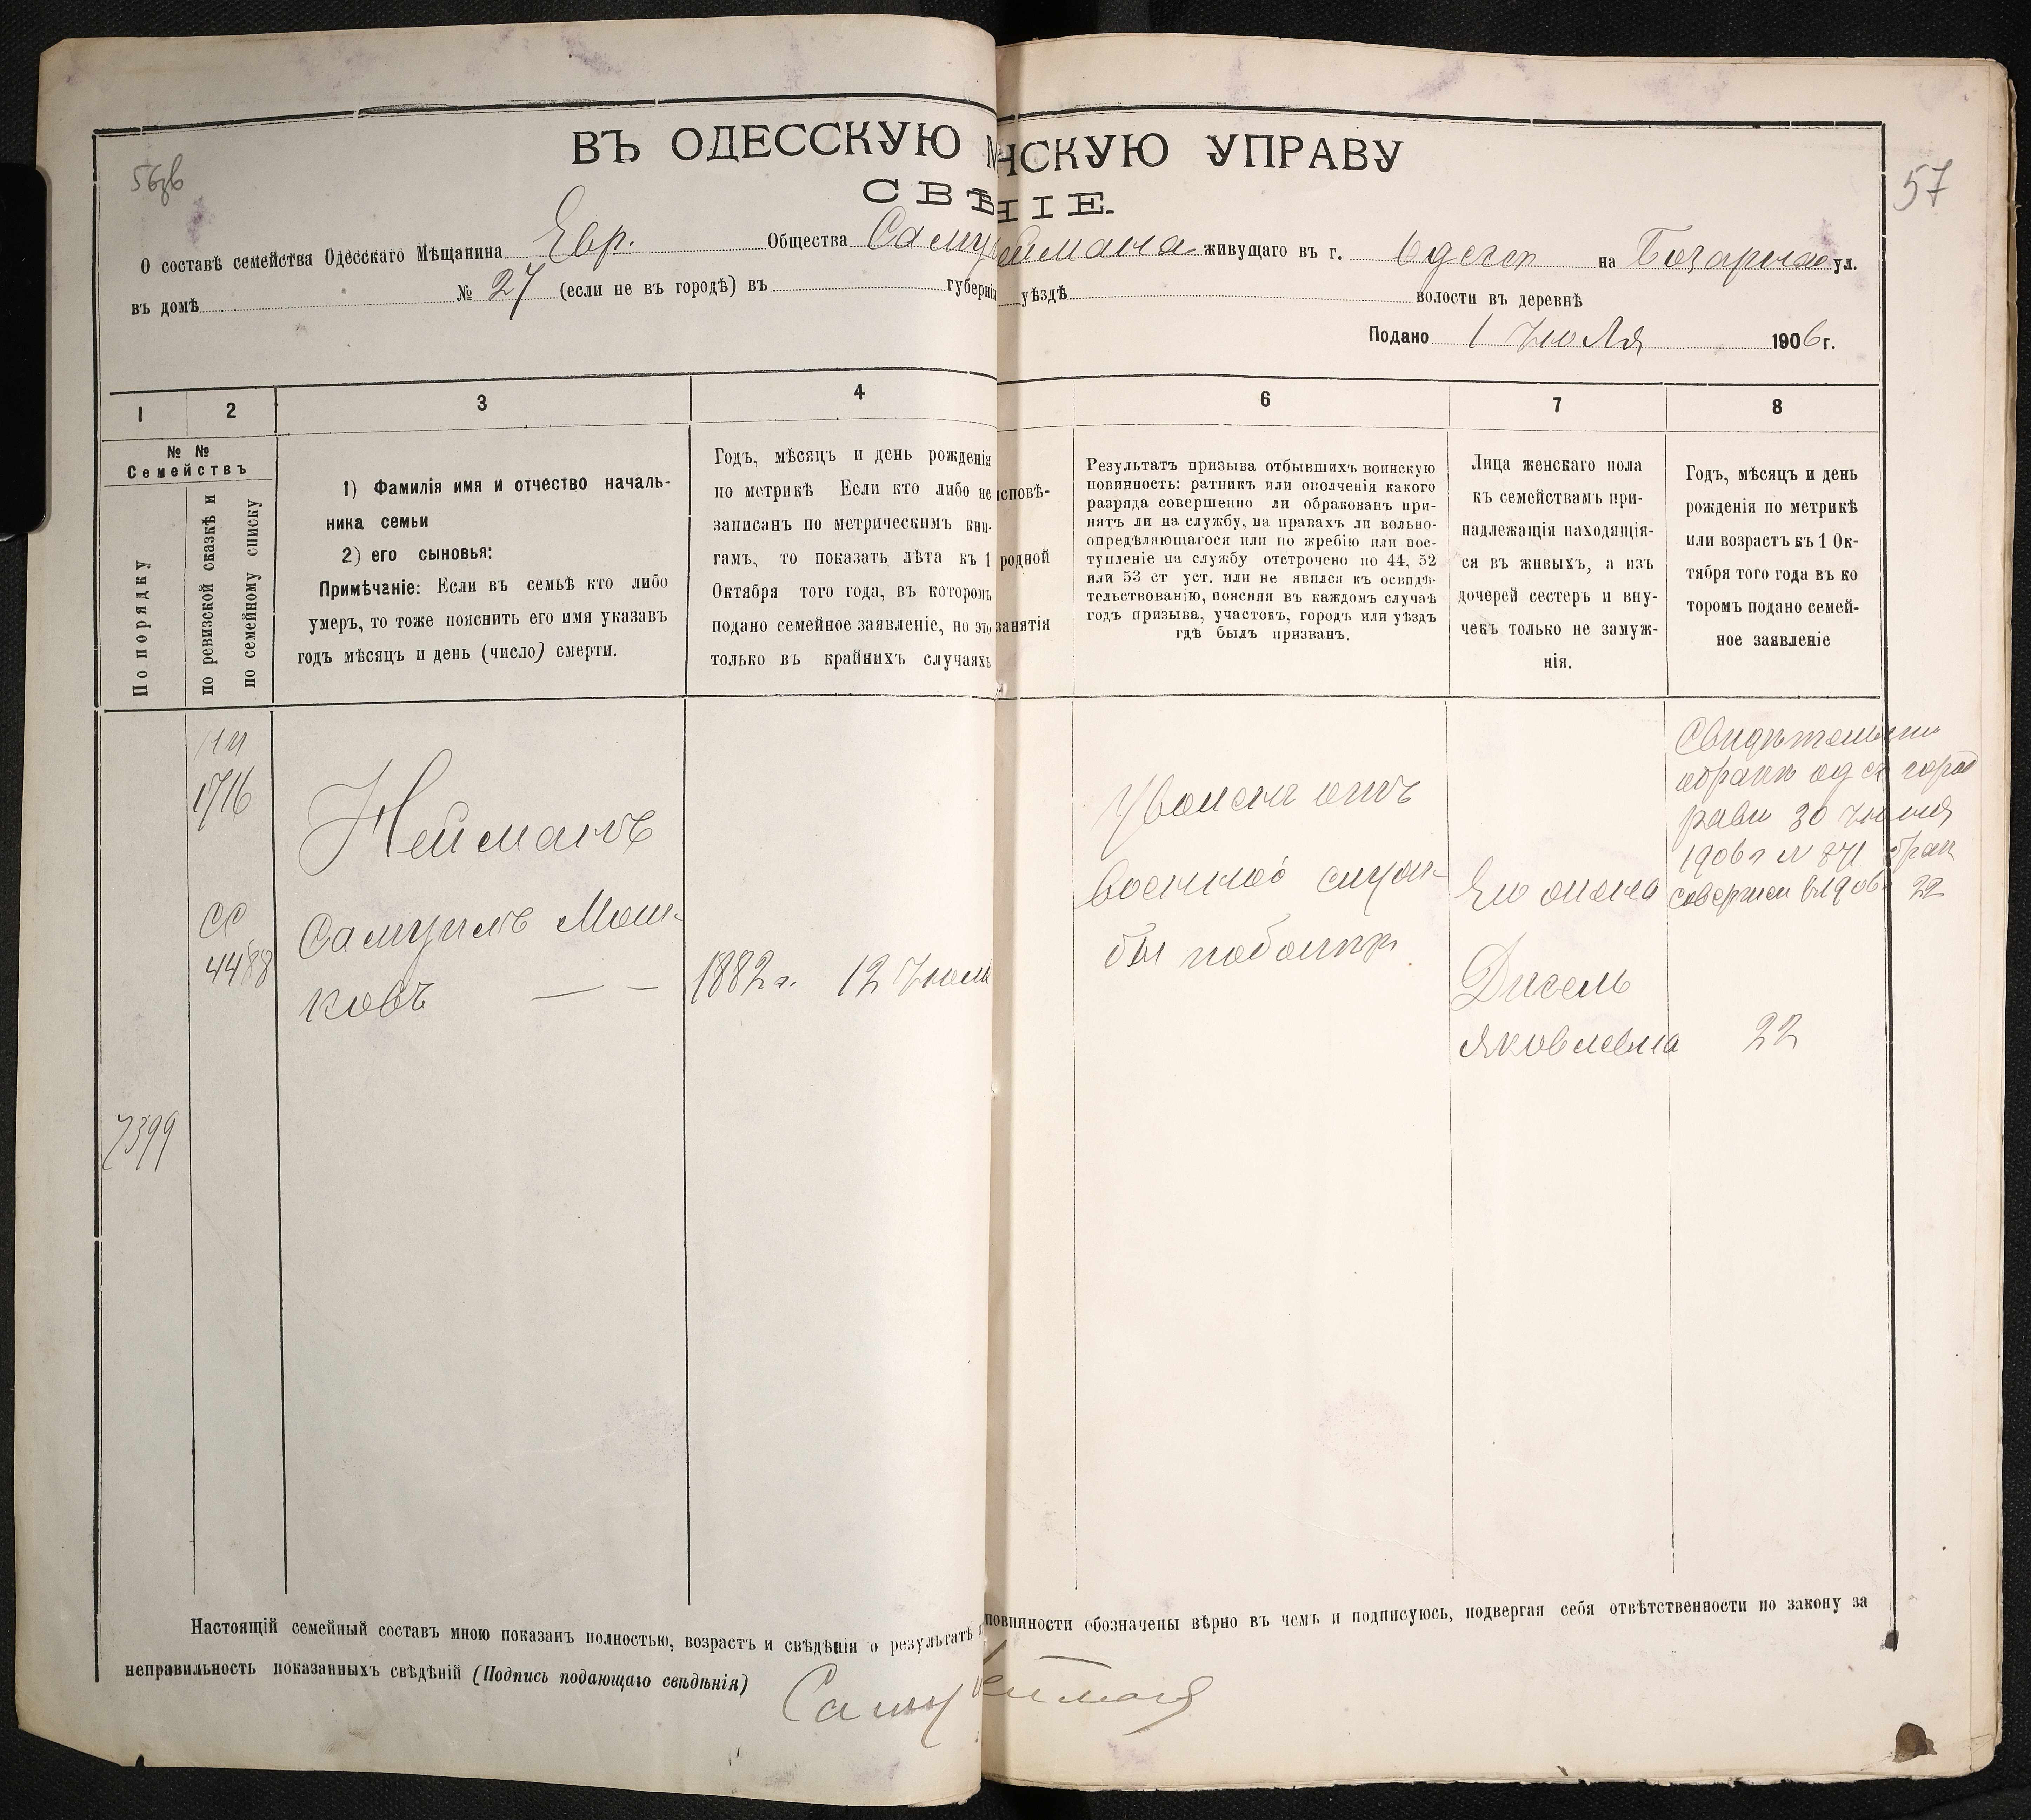 57
ВЪ ОДЕССКУЮ НСКУЮ УПРАВУ
СВѢ НІЕ.
О составѣ семейства Одесскаго Мѣщанина Евр. Общества Саму ймана живущаго въ г. Одессѣ на ул.
въ домѣ № 27 (если не въ городѣ) въ губерніи уѣздѣ волости въ деревнѣ
Подано 1 Июля 1906 г.
1
2
3
4
6
7
8
№ №
Семействъ
По порядку
по ревизской сказкѣ и
по семейному списку
1) Фамилія имя и отчество началь-
ника семьи
2) его сыновья:
Примѣчаніе: Если въ семьѣ кто либо
умеръ, то тоже пояснить его имя указавъ
годъ мѣсяцъ и день (число) смерти.
Годъ, мѣсяцъ и день рожденія
по метрикѣ Если кто либо не
записанъ по метрическимъ кни-
гамъ, то показать лѣта къ 1
Октября того года, въ которомъ
подано семейное заявленіе, но это
только въ крайнихъ случаяхъ
исповѣ-
родной
занятія
Результатъ призыва отбывшихъ воинскую
повинность: ратникъ или ополченія какого
разряда совершенно ли обракованъ при-
нятъ ли на службу, на правахъ ли вольно-
опредѣляющагося или по жребію или пос-
тупленіе на службу отстрочено по 44, 52
или 53 ст уст. или не явился къ освидѣ-
тельствованію, поясняя въ каждомъ случаѣ
годъ призыва, участокъ, городъ или уѣздъ
гдѣ былъ призванъ.
Лица женскаго пола
къ семействамъ при-
надлежащія находящія-
ся въ живыхъ, а изъ
дочерей сестеръ и вну-
чекъ только не замуж-
нія.
Годъ, мѣсяцъ и день
рожденія по метрикѣ
или возрастъ къ 1 Ок-
тября того года въ ко
торомъ подано семей-
ное заявленіе
1716
Нейманъ
Самуилъ Мош-
ковъ — —
СС
4488
1882 г. 12 Июля
Уволенъ отъ
военной служ-
бы
Его жена
Дисель
Яковлевна
22
30 Июня
1906 г № 871
22
7399
Настоящій семейный составъ мною показанъ полностью, возрастъ и свѣдѣнія о результатѣ повинности обозначены вѣрно въ чемъ и подписуюсь, подвергая себя отвѣтственности по закону за
неправильность показанныхъ свѣдѣній (Подпись подающаго свѣдѣнія)